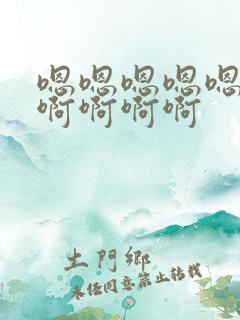 嗯嗯嗯嗯嗯
啊啊啊啊
土門鄉
未经同意禁止转载